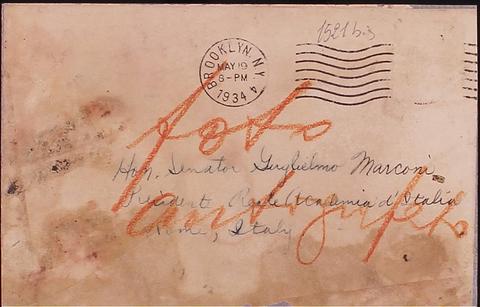 1521 b.3
BROOKLYN, N.Y. 4
MAY 19
6-PM
1934
foto
Hon. Senator Guglielmo Marconi,
President Reale Accademia d'Italia
autografo
Rome, Italy